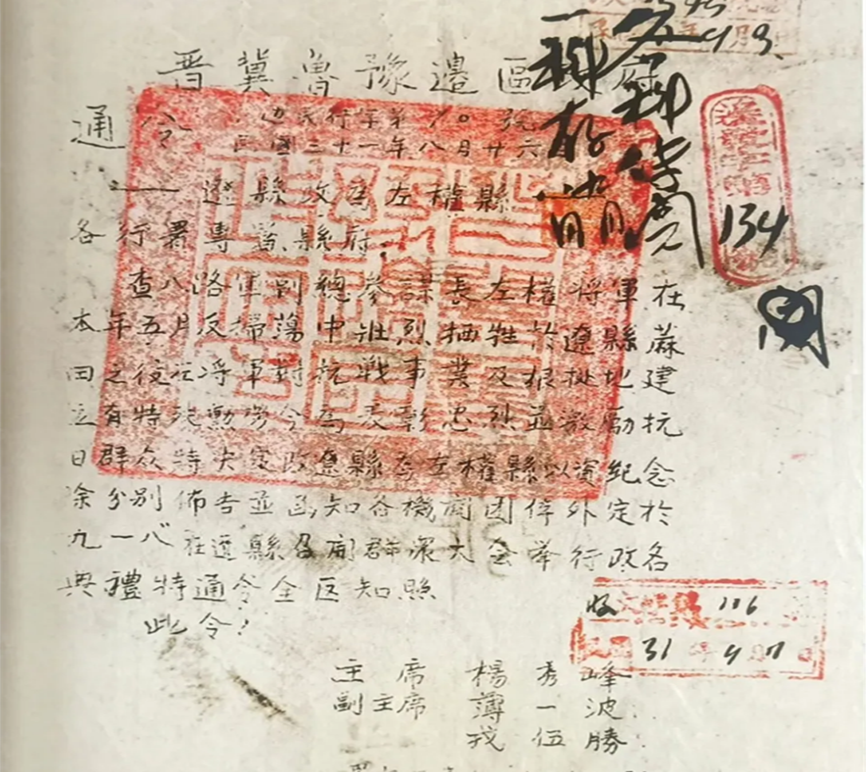 晋冀魯豫邊區政府
通令
邊民行字第 10 號
民國三十一年八月廿六
—遼縣改為左權縣
各行署專署縣府：
查八路軍副總參謀長左權將軍在
本年五月反掃蕩中壯烈牺牲於遼縣蔴
田之役左将軍對抗戰事業及根据地建
立有特殊勳勞今為表彰忠烈並激励抗
日群众特决定改遼縣為左權縣以資紀念
除分别佈告並函知各機関团体外定於
九一八在遼縣召開群衆大会举行政名
典禮特通令全区知照
此令！
主席 楊秀峰
副主席 薄一波
戎伍勝
134
收文 字號 116
民國 31 年 9 月 7 日